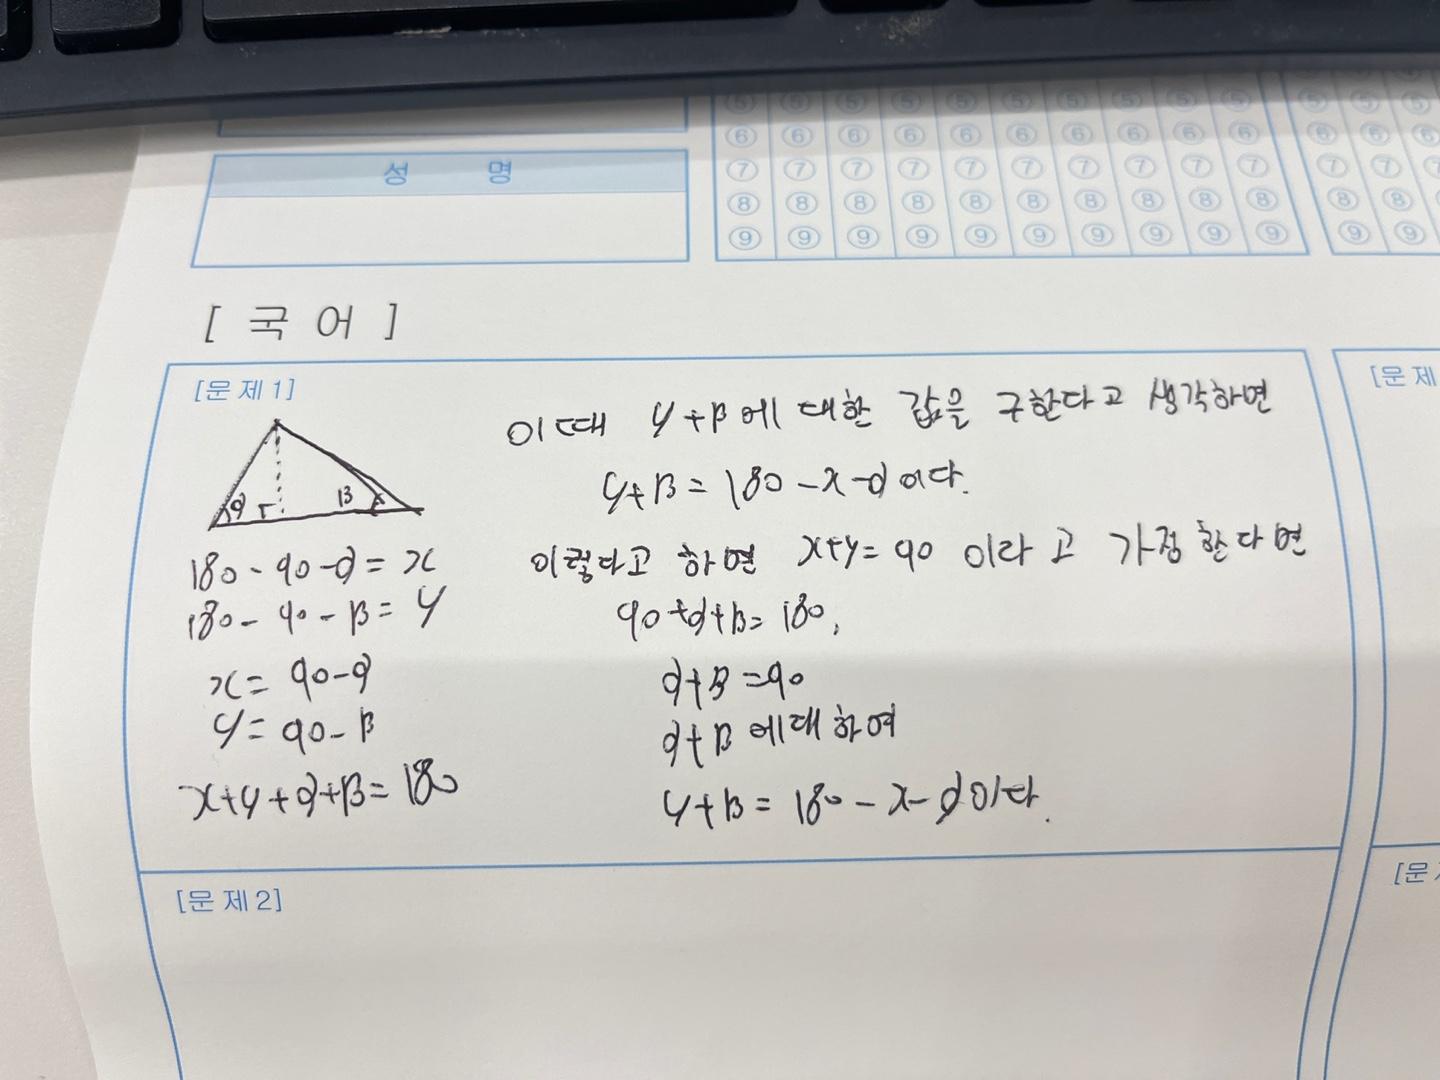 ⑤ ⑤ ⑤ ⑤ ⑤ ⑤ ⑤ ⑤ ⑤ ⑤ ⑤ ⑤ ⑤
⑥ ⑥ ⑥ ⑥ ⑥ ⑥ ⑥ ⑥ ⑥ ⑥ ⑥ ⑥ ⑥
성 명
⑦ ⑦ ⑦ ⑦ ⑦ ⑦ ⑦ ⑦ ⑦ ⑦ ⑦ ⑦ ⑦
⑧ ⑧ ⑧ ⑧ ⑧ ⑧ ⑧ ⑧ ⑧ ⑧ ⑧ ⑧
⑨ ⑨ ⑨ ⑨ ⑨ ⑨ ⑨ ⑨ ⑨ ⑨ ⑨ ⑨
[ 국 어 ]
[문 제 1]
α β
180 - 90 - α = x
180 - 90 - β = y
x = 90 - α
y = 90 - β
x + y + α + β = 180
이때 y + β에 대한 값을 구한다고 생각하면
y + β = 180 - x - α 이다.
이렇다고 하면 x + y = 90 이라고 가정한다면
90 + α + β = 180,
α + β = 90
α + β 에대하여
y + β = 180 - x - α 이다.
[문 제 2]
[문 제
[문